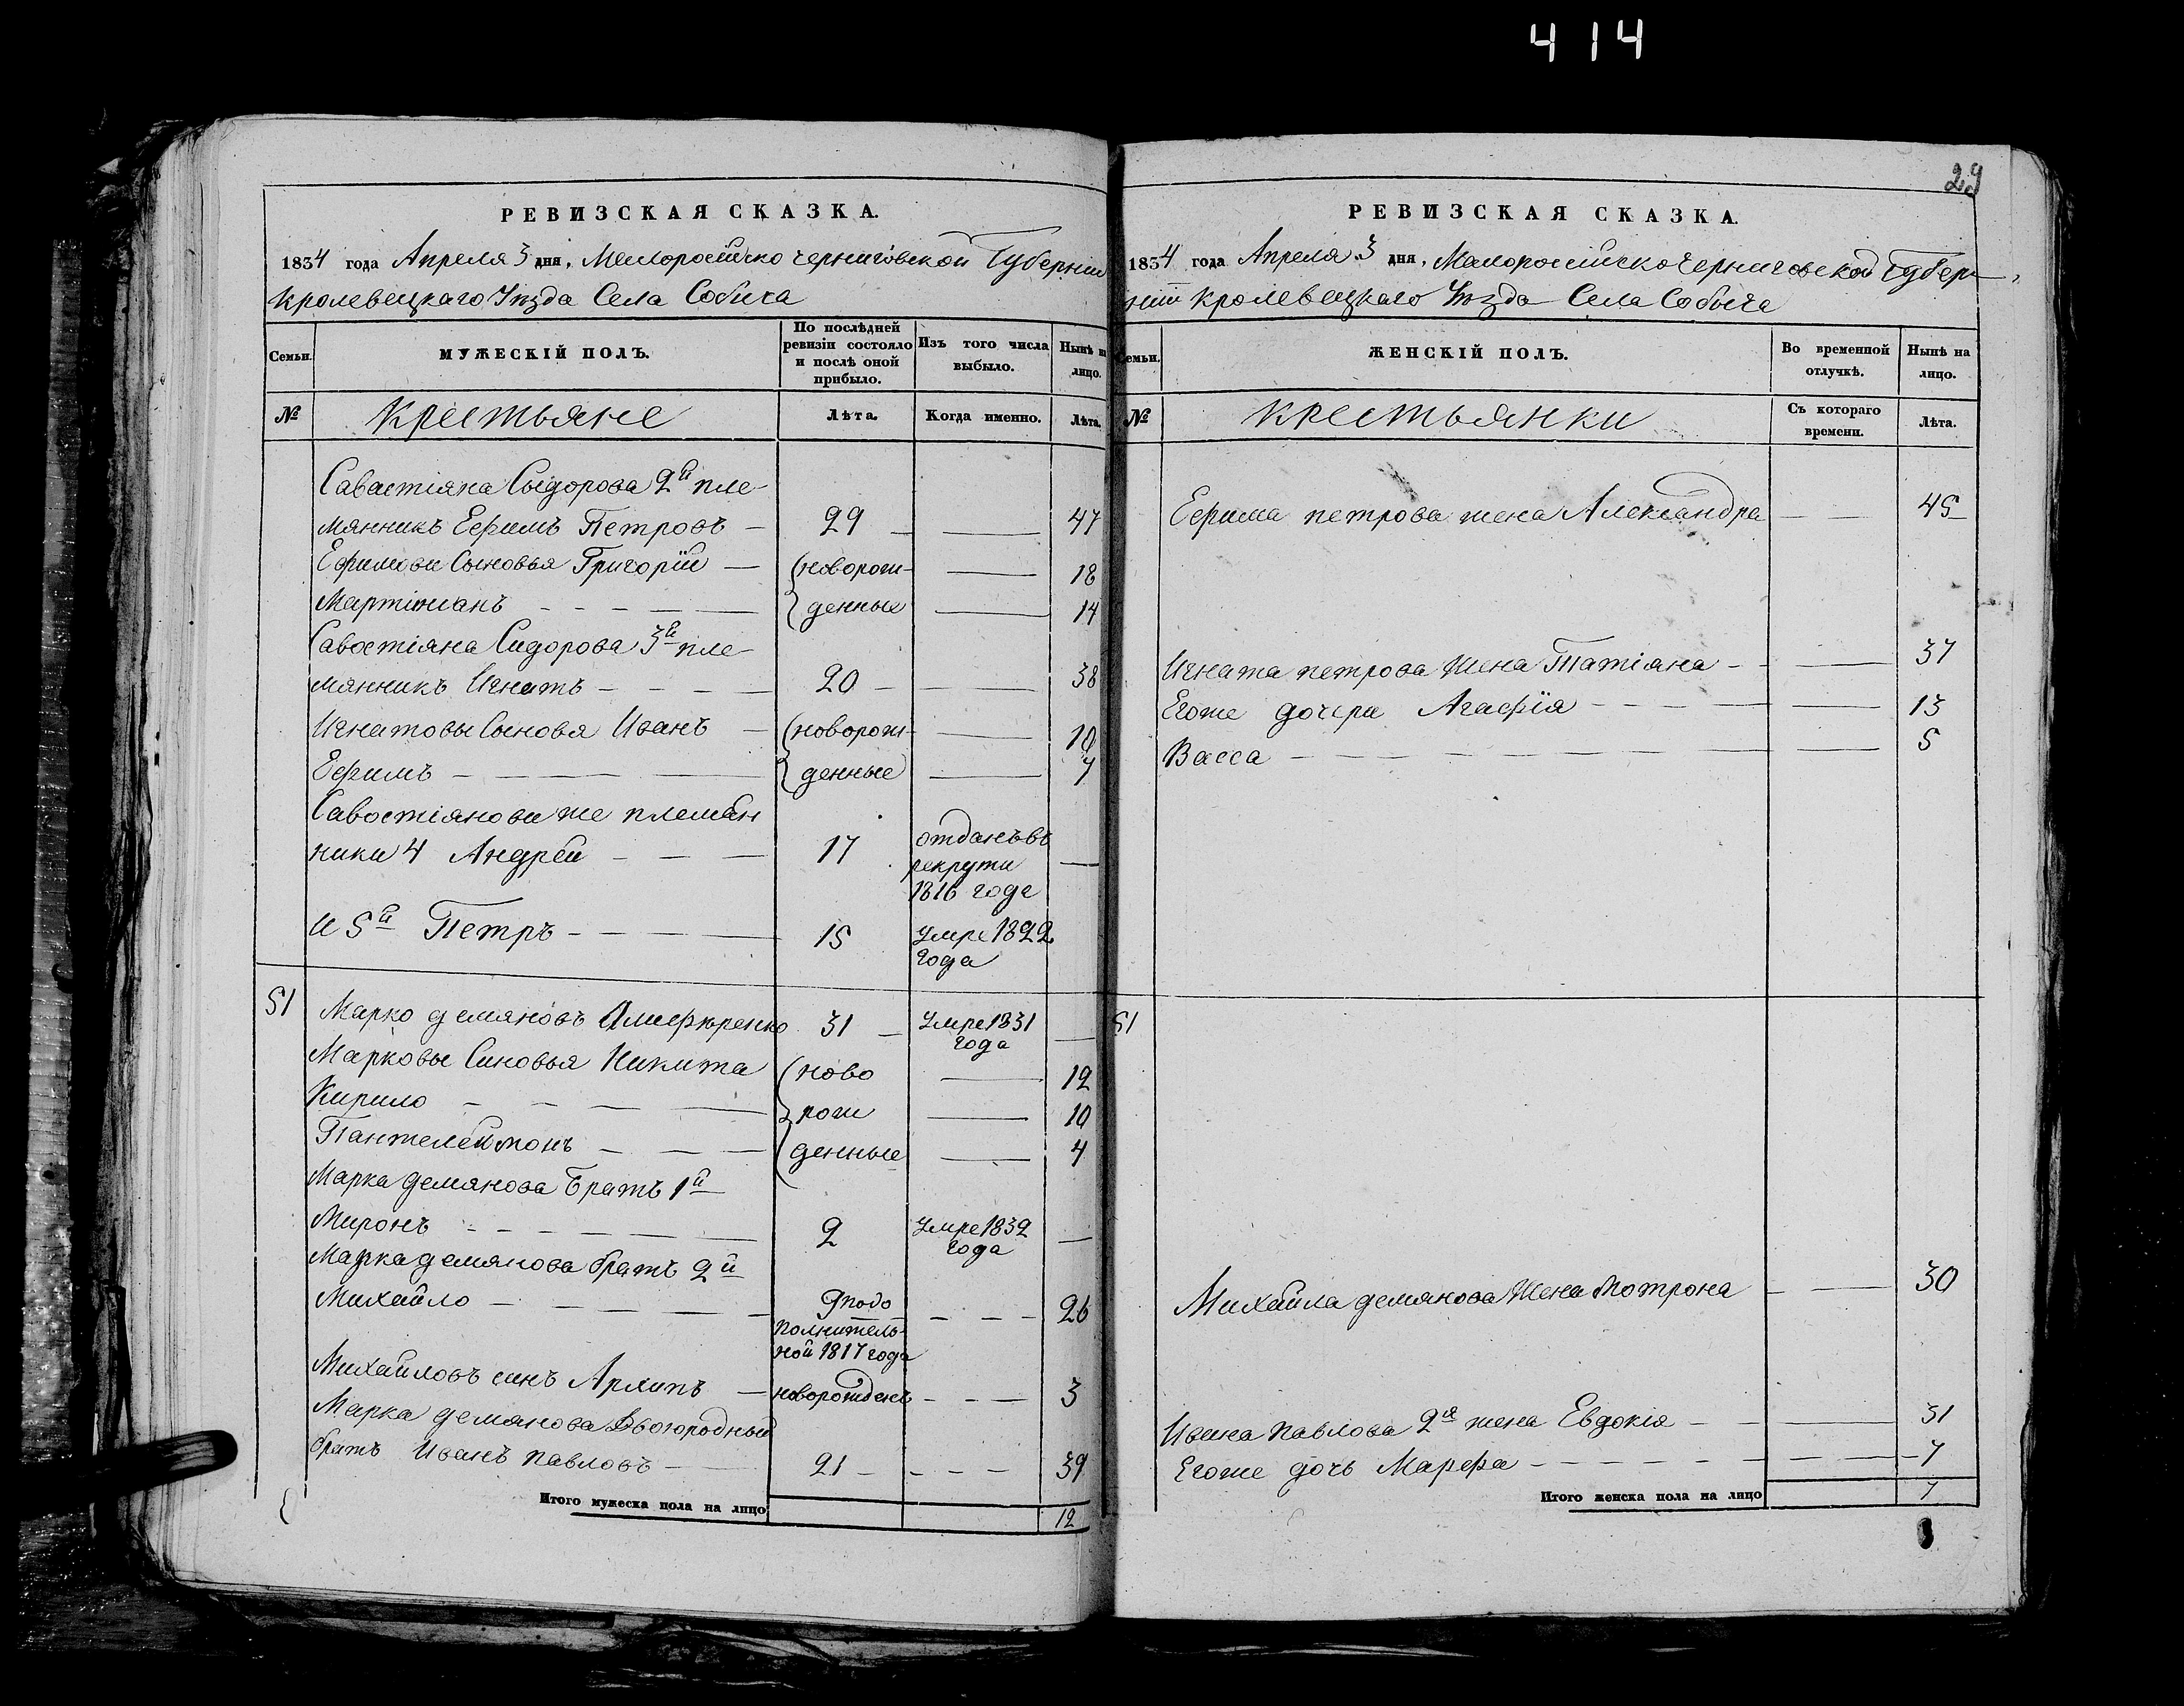 414
РЕВИЗСКАЯ СКАЗКА.
1834 года Апреля 3 дня. Малоросийско черниговской Губернии
Кролевецкаго Уѣзда Села Собича
Семьи.
МУЖЕСКІЙ ПОЛЪ.
По послѣдней ревизіи состояло и послѣ оной прибыло.
Изъ того числа выбыло.
Нынѣ на лицо.
№
Крестьяне
Лѣта.
Когда именно.
Лѣта.
Савастіяна Сыдорова 2й пле-
мянникъ Ефимъ Петровъ — 29 — — 47
Ефимови Сыновья Григорій — (новорож- — 18
Мартініанъ — денные — 14
Савостіяна Сидорова 3й пле-
мянникъ Игнатъ — 20 — — 38
Игнатовы Сыновя Иванъ — (новорож- — 10
Ефимъ — денные — 7
Савостіянови же племян
ники 4 Андрей — 17 отданъ въ —
рекрути
1816 годе
и 5й Петръ — 15 умре 1822
года
51 Марко демяновъ 31 — умре 1831 —
года
Марковы Синовья Никита (ново — 12
Кирило — рож — 10
Пантелеймонъ — (денные — 4
Марка демянова Братъ 1й
Миронъ — 2 умре 1832 —
года
Марка демянова братъ 2й
Михайло — 9 подо — 26
полнитель-
ной 1817 года
Михайловъ синъ Архипъ — новорожденъ — 3
Марка демянова Двоюродный
братъ Иванъ павловъ — 21 — — 39
Итого мужеска пола на лицо 12
29
РЕВИЗСКАЯ СКАЗКА.
1834 года Апреля 3 дня. Малоросийско черниговской губер-
нии Кролевецкаго Уѣзда Села Собича
Семьи.
ЖЕНСКІЙ ПОЛЪ.
Во временной отлучкѣ.
Нынѣ на лицо.
№
крестьянки
Съ котораго времени.
Лѣта.
Ефима петрова жена Александра — — 45
Игната петрова жена Татіяна — — 37
Егоже дочери Агафія — — 13
Васса — — 5
51
Михайла демянова Жена Мотрона — — 30
Ивана павлова 2я жена Евдокія — — 31
Егоже дочь Марфа — — 7
Итого женска пола на лицо 7